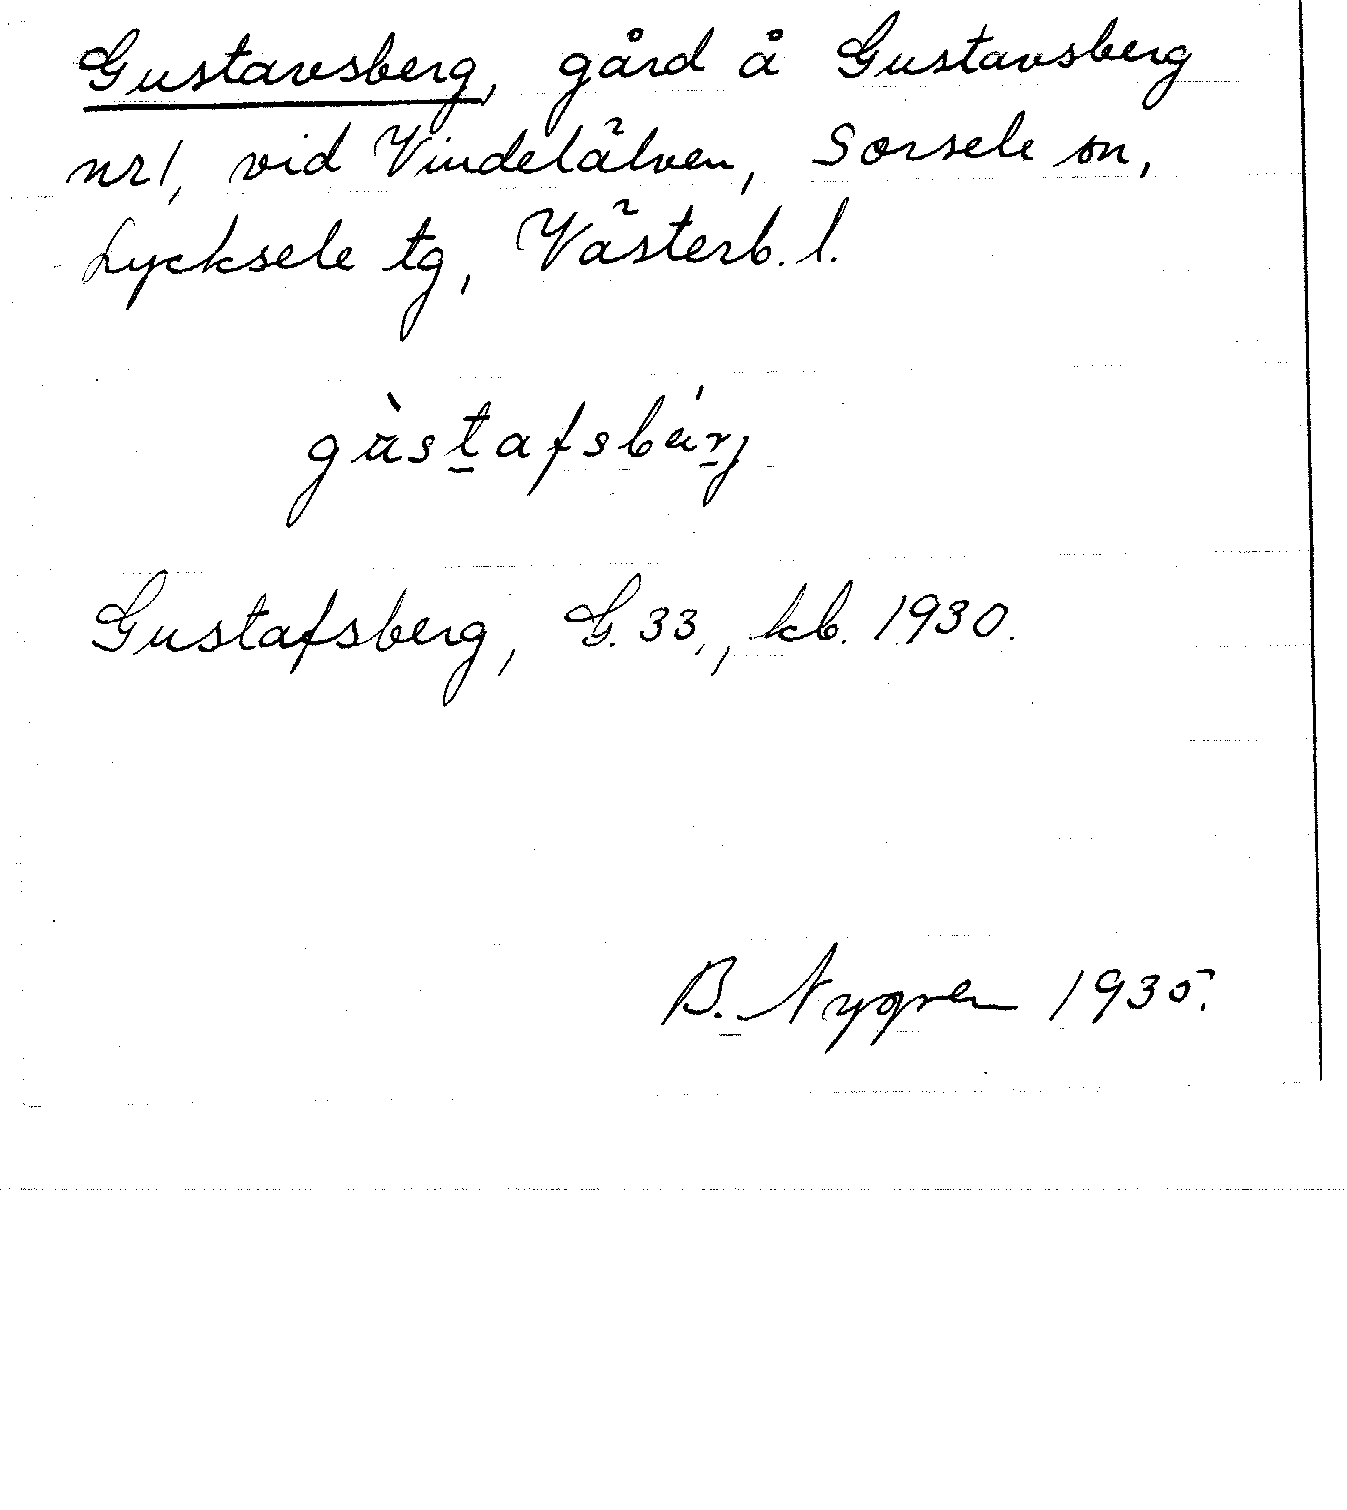 Gustavsberg, gård å Gustavsberg
nr 1, vid Vindelälven, Sorsele sn,
Lycksele tg, Västerb. l.
gùstafsbárj
Gustafsberg, G. 33, kb. 1930.
B. Nygren 1935.